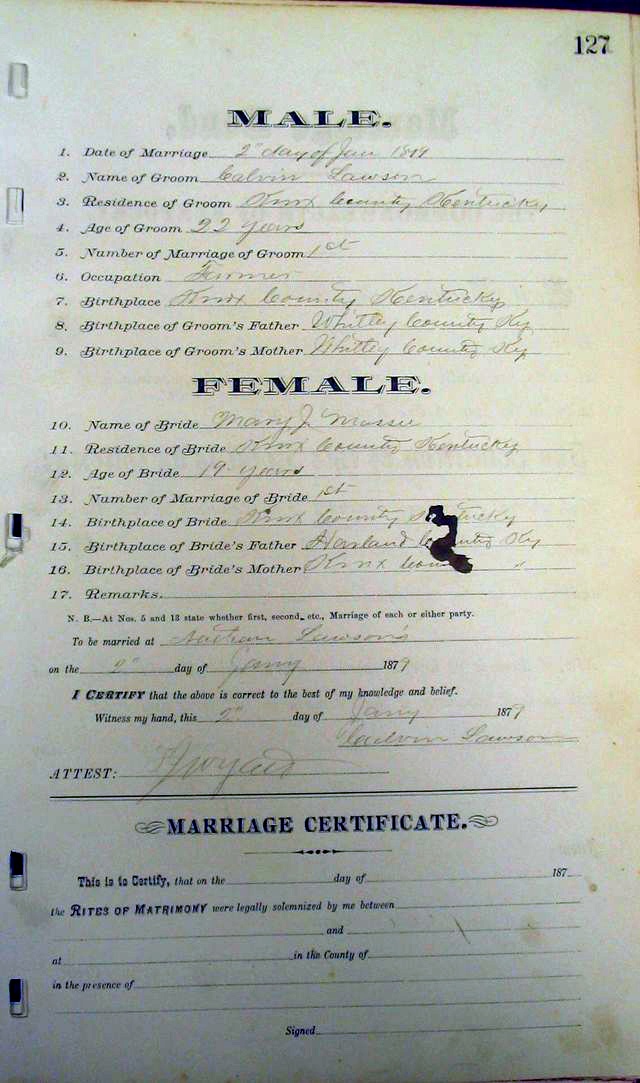 127
MALE.
1. Date of Marriage 2" day of Jan 1879
2. Name of Groom Calvin Lawson
3. Residence of Groom Knox County Kentucky
4. Age of Groom 22 years
5. Number of Marriage of Groom 1st
6. Occupation Farmer
7. Birthplace Knox County Kentucky
8. Birthplace of Groom's Father Whitley County Ky
9. Birthplace of Groom's Mother Whitley County Ky
FEMALE.
10. Name of Bride Mary J
11. Residence of Bride Knox County Kentucky
12. Age of Bride 19 years
13. Number of Marriage of Bride 1st
14. Birthplace of Bride Knox County Kentucky
15. Birthplace of Bride's Father Harland County Ky
16. Birthplace of Bride's Mother Knox Coun "
17. Remarks.
N. B.—At Nos. 5 and 13 state whether first, second, etc., Marriage of each or either party.
To be married at Lawson's
on the 2" day of Jany 1879
I CERTIFY that the above is correct to the best of my knowledge and belief.
Witness my hand, this 2" day of Jany 1879
Calvin Lawson
ATTEST:
MARRIAGE CERTIFICATE.
This is to Certify, that on the day of 187
the RITES OF MATRIMONY were legally solemnized by me between
and
at in the County of
in the presence of
Signed